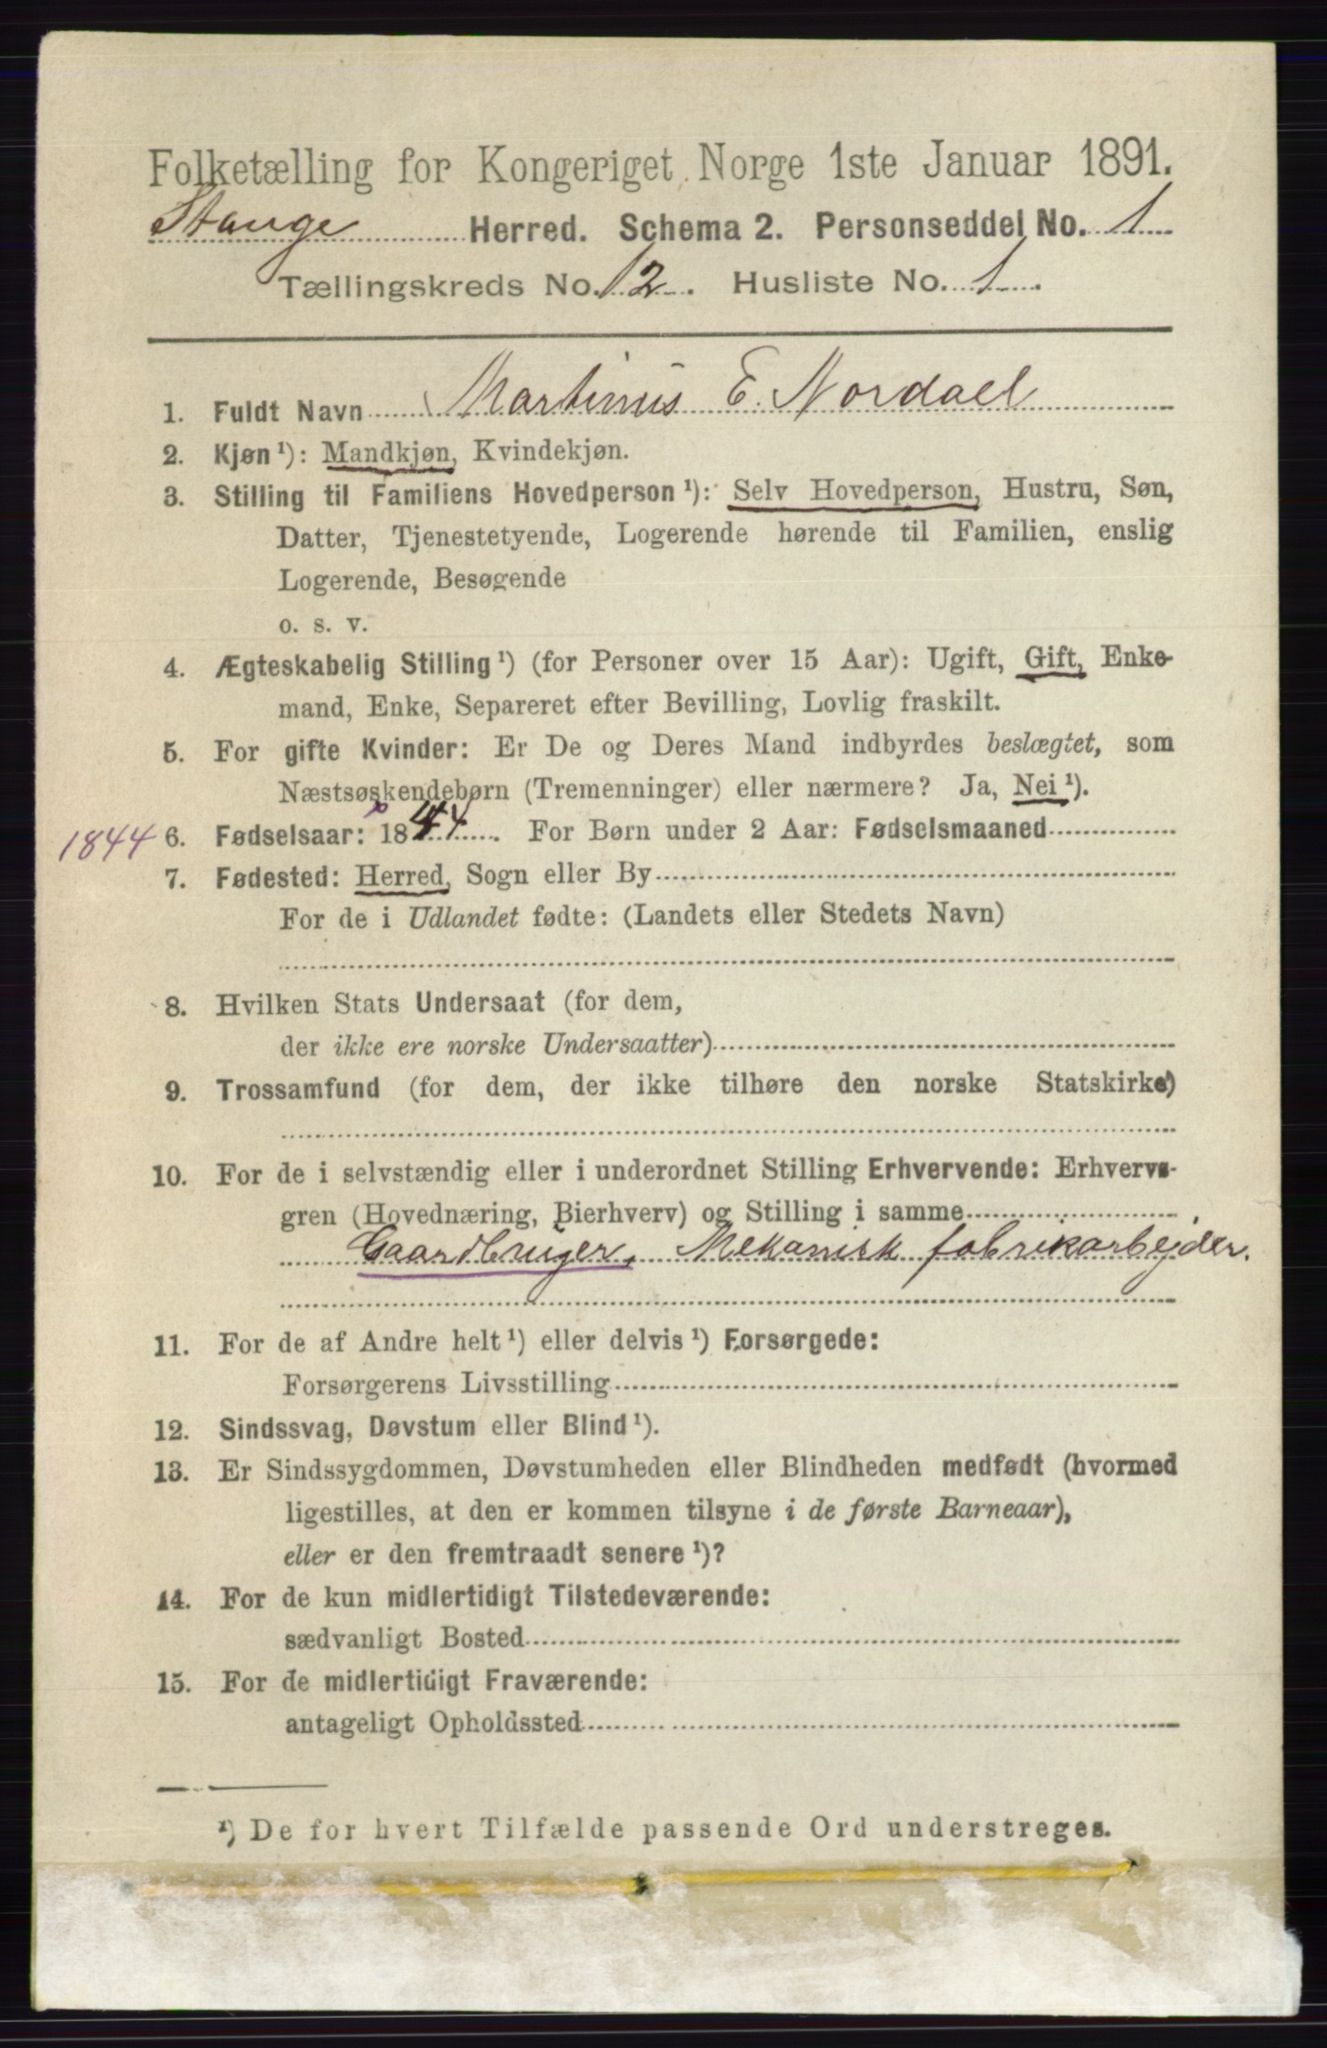 Folketælling for Kongeriget Norge 1ste Januar 1891.
Stange Herred. Schema 2. Personseddel No. 1
Tællingskreds No. 12. Husliste No. 1.
1. Fuldt Navn Martinus E. Nordael
2. Kjøn¹): Mandkjøn, Kvindekjøn.
3. Stilling til Familiens Hovedperson¹): Selv Hovedperson, Hustru, Søn,
Datter, Tjenestetyende, Logerende hørende til Familien, enslig
Logerende, Besøgende
o. s. v.
4. Ægteskabelig Stilling¹) (for Personer over 15 Aar): Ugift, Gift, Enke-
mand, Enke, Separeret efter Bevilling, Lovlig fraskilt.
5. For gifte Kvinder: Er De og Deres Mand indbyrdes beslægtet, som
Næstsøskendebørn (Tremenninger) eller nærmere? Ja, Nei¹).
1844 6. Fødselsaar: 1844. For Børn under 2 Aar: Fødselsmaaned
7. Fødested: Herred, Sogn eller By
For de i Udlandet fødte: (Landets eller Stedets Navn)
8. Hvilken Stats Undersaat (for dem,
der ikke ere norske Undersaatter)
9. Trossamfund (for dem, der ikke tilhøre den norske Statskirke)
10. For de i selvstændig eller i underordnet Stilling Erhvervende: Erhvervs-
gren (Hovednæring, Bierhverv) og Stilling i samme
Gaardbruger, Mekanisk fabrikarbejder.
11. For de af Andre helt¹) eller delvis¹) Forsørgede:
Forsørgerens Livsstilling
12. Sindssvag, Døvstum eller Blind¹).
13. Er Sindssygdommen, Døvstumheden eller Blindheden medfødt (hvormed
ligestilles, at den er kommen tilsyne i de første Barneaar),
eller er den fremtraadt senere¹)?
14. For de kun midlertidigt Tilstedeværende:
sædvanligt Bosted
15. For de midlertidigt Fraværende:
antageligt Opholdssted
¹) De for hvert Tilfælde passende Ord understreges.